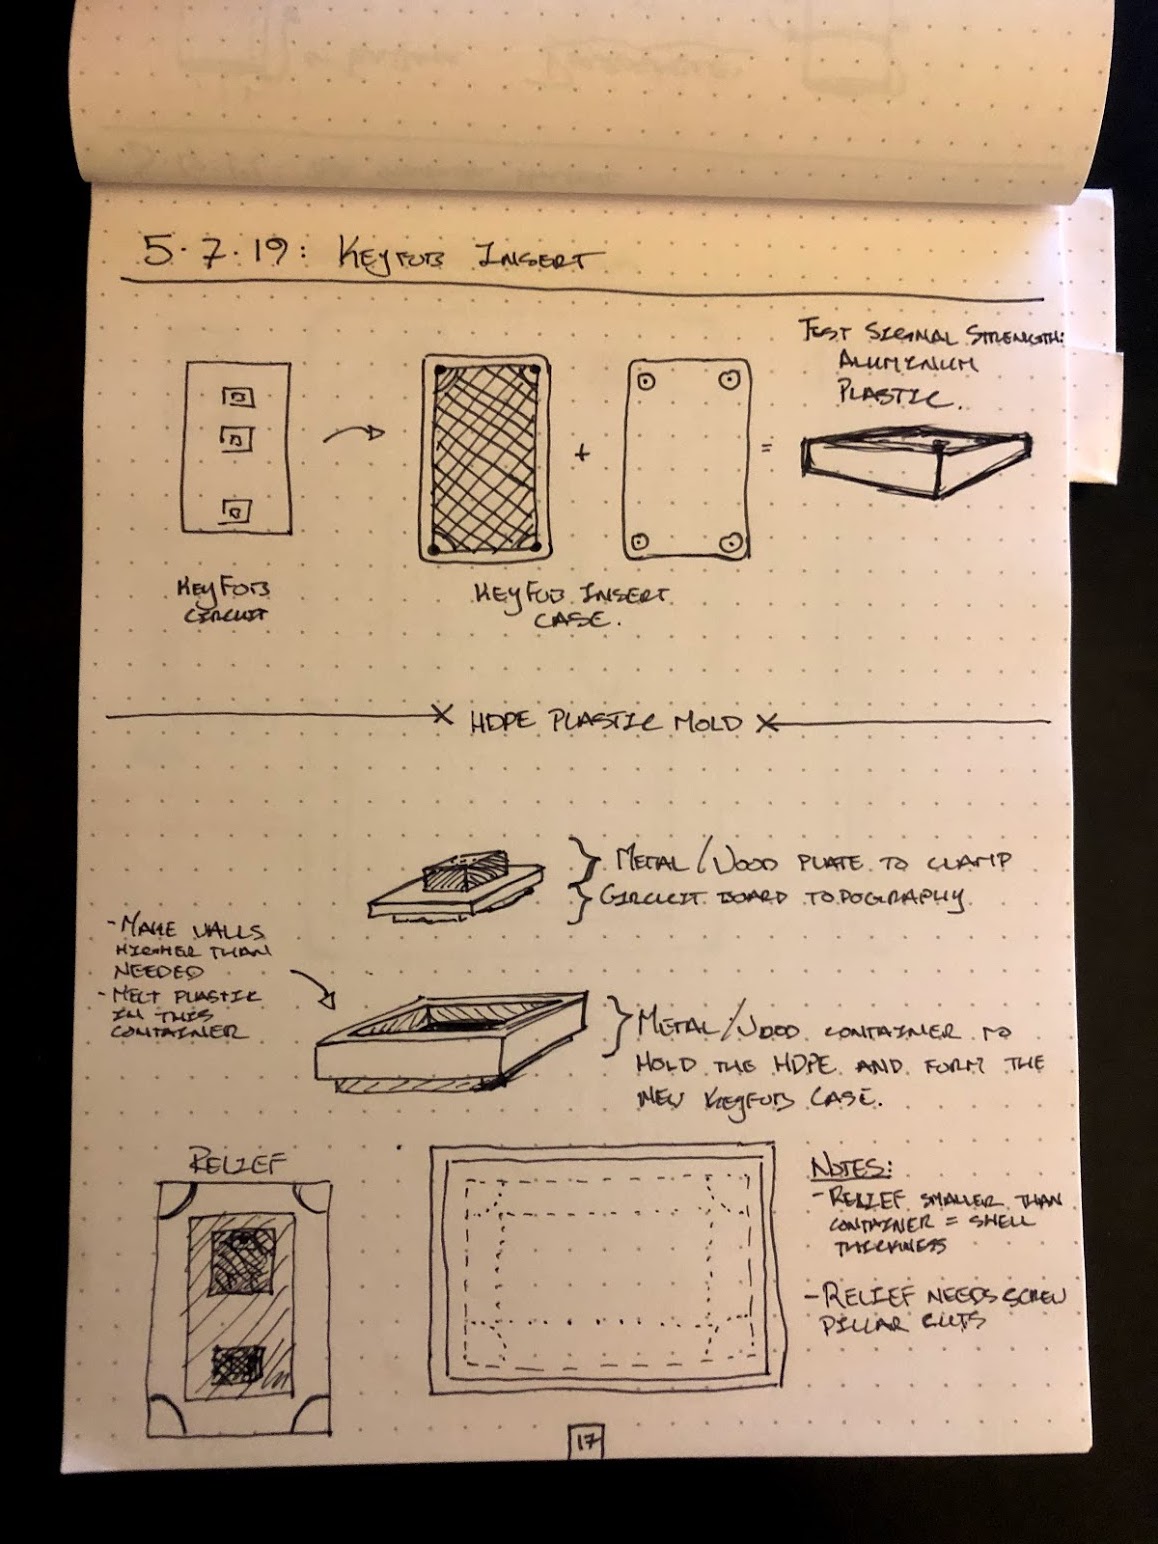 5.7.19: KEYFOB INSERT
TEST SIGNAL STRENGTH:
ALUMINIUM
PLASTIC.
+
=
KEYFOB
CIRCUIT
KEYFOB INSERT
CASE.
HDPE PLASTIC MOLD
METAL/WOOD PLATE TO CLAMP
CIRCUIT BOARD TOPOGRAPHY
- MAKE WALLS
HIGHER THAN
NEEDED
- MELT PLASTIC
IN THIS
CONTAINER
METAL/WOOD CONTAINER TO
HOLD THE HDPE AND FORM THE
NEW KEYFOB CASE.
RELIEF
NOTES:
- RELIEF SMALLER THAN
CONTAINER = SHELL
THICKNESS
- RELIEF NEEDS SCREW
PILLAR CUTS
17